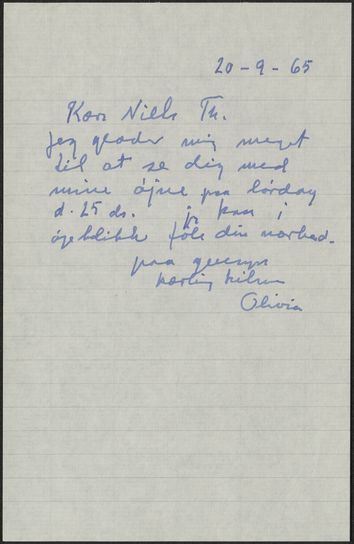 20-9-65
Kære Niels Th.
Jeg glæder mig meget
til at se dig med
mine øjne paa lørdag
d. 25 ds. jeg kan i
øjeblikke føle din nærhed.
paa gensyn
kærlig hilsen
Olivia